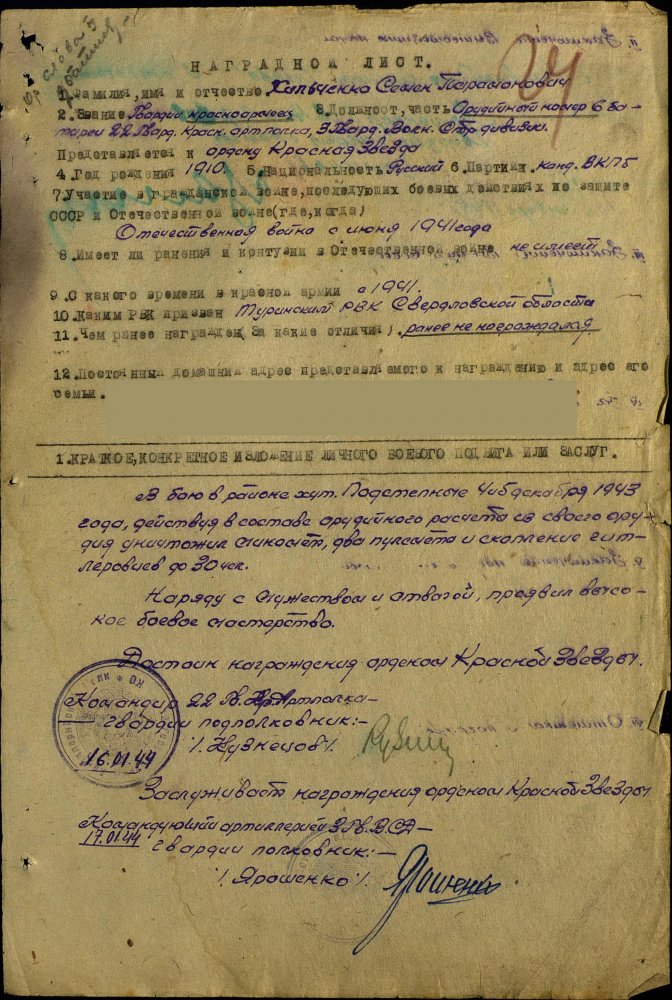 НАГРАДНОЙ ЛИСТ.
1. Фамилия, имя и отчество Хильченко Семен Парамонович
2. Звание Гвардии красноармеец 3. Должност, часть Орудийный номер 6 ба-
тареи 22 Гвард. Красн. артполка, 3 Гвард. Волн. Стр дивизии.
Представляется к ордену Красная Звезда
4. Год рождения 1910. 5. Национальность Русский 6. Партийн. канд. ВКПб
7. Участие в гражданской войне, последующих боевых действиях по защите
СССР и Отечественной войне (где, когда)
Отечественная война с июня 1941 года
8. Имеет ли ранения и контузии в Отечественной войне не имеет
9. С какого времени в красной армии с 1941.
10. Каким РВК призван Туринским РВК Свердловской области
11. Чем ранее награжден (за какие отличия). ранее не награждался
12. Постоянный домашний адрес представляемого к награждению и адрес его
семьи.
1. КРАТКОЕ, КОНКРЕТНОЕ ИЗЛОЖЕНИЕ ЛИЧНОГО БОЕВОГО ПОДВИГА ИЛИ ЗАСЛУГ.
В бою в районе хут. Подстепные 4 и 6 декабря 1943
года, действуя в составе орудийного расчета из своего ору-
дия уничтожил миномёт, два пулемёта и скопление гит-
леровцев до 30 чел.
Наряду с мужеством и отвагой, проявил высо-
кое боевое мастерство.
Достоин награждения орденом Красной Звезды.
Командир 22 Гв. Кр. Артполка-
гвардии подполковник:-
/. Кузнецов /.
16.01.44
Заслуживает награждения орденом Красной Звезды
Командующий артиллерией 3 Гв. В.СД-
17.01.44
гвардии полковник:-
/. Ярошенко /.
Ярошенко